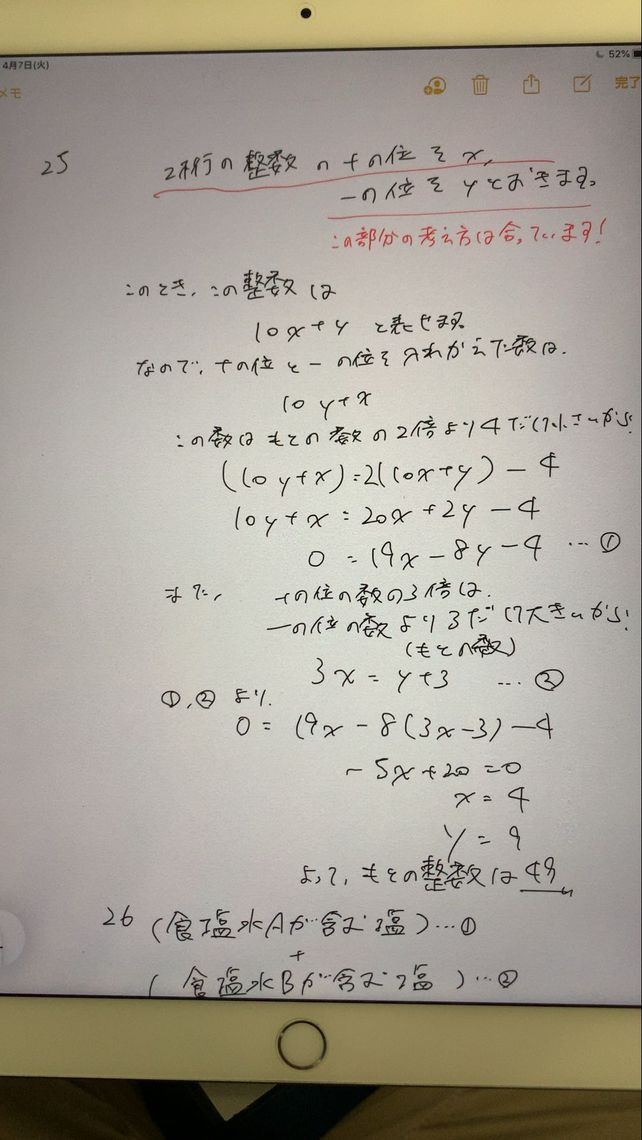 4月7日(火)
52%
メモ
完了
25
2桁の整数の十の位をx,
一の位をyとおきます。
この部分の考え方は合っています!
このとき、この整数は
10x+y と表せます。
なので、十の位と一の位を入れかえた数は、
10y+x
この数はもとの数の2倍より4だけ小さいから
(10y+x)=2(10x+y)-4
10y+x=20x+2y-4
0=19x-8y-4 …①
また、十の位の数の3倍は、
一の位の数より3だけ大きいから
(もとの数)
3x=y+3 …②
①,②より、
0=19x-8(3x-3)-4
-5x+20=0
x=4
y=9
よって、もとの整数は49
26 (食塩水Aが含む塩)…①
+
(食塩水Bが含む塩)…②